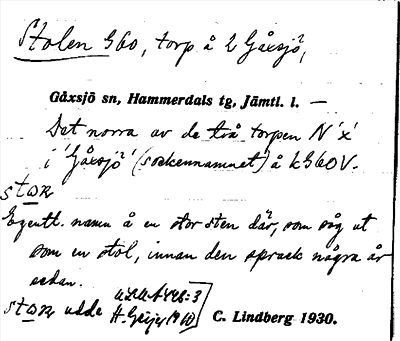 Stolen G60, torp å 2 Gåxsjö,
Gåxsjö sn, Hammerdals tg, Jämtl. l. —
Det norra av de två torpen N 'x'
i 'Gåxsjö' (sockennamnet) å kG60V.
Egentl. namn å en stor sten där, som såg ut
som en stol, innan den sprack några år
sedan.
udde
C. Lindberg 1930.